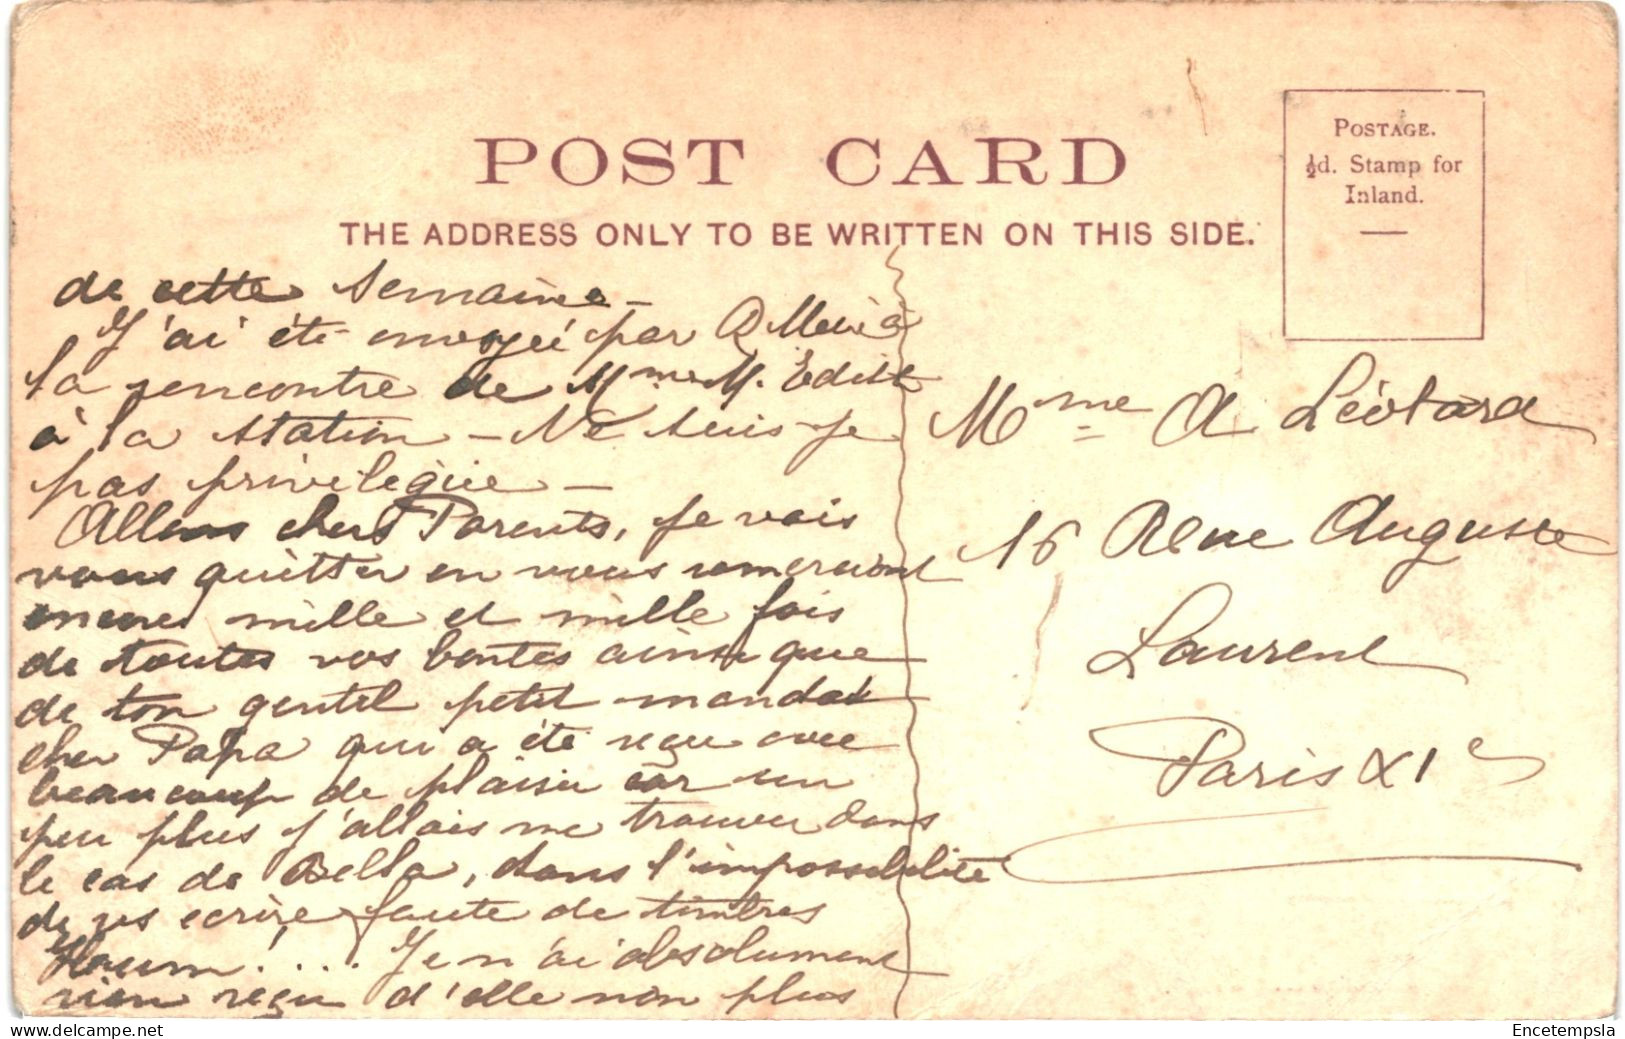 POST CARD
THE ADDRESS ONLY TO BE WRITTEN ON THIS SIDE.
POSTAGE.
½d. Stamp for
Inland.
de cette semaine –
J'ai été envoyée par à
la rencontre de Mme M. Edith
à la station – Ne suis-je
pas privilégiée –
Allons chers Parents, je vais
vous quitter en vous remerciant
encore mille et mille fois
de toutes vos bontés ainsi que
de ton gentil petit mandat
cher Papa qui a été reçu avec
beaucoup de plaisir car un
peu plus j'allais me trouver dans
le cas de Bella, dans l'impossibilité
de vs écrire faute de timbres
Houm! . . . Je n'ai absolument
rien reçu d'elle non plus
Mme A Léotard
16 Rue Auguste
Laurent
Paris XIe
Encetempsla